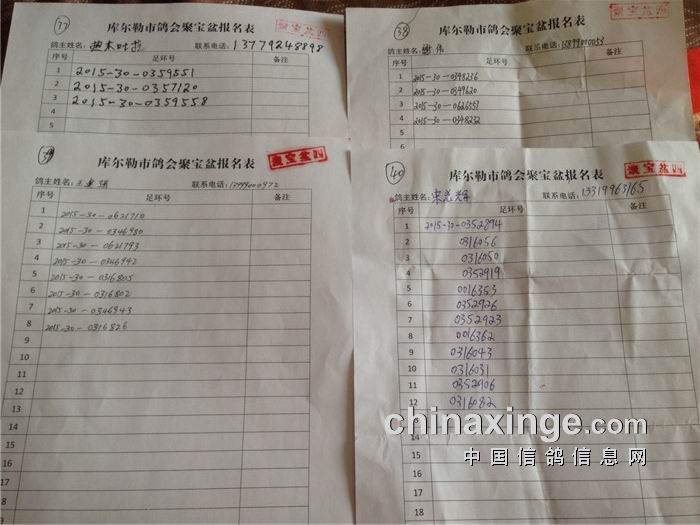 37
库尔勒市鸽会聚宝盆报名表
鸽主姓名: 联系电话: 13779248898
序号 足环号 备注
1 2015-30-0359551
2 2015-30-0357120
3 2015-30-0359558
4
5
聚宝盆四
38
库尔勒市鸽会聚宝盆报名表
鸽主姓名: 谢伟 联系电话: 13899000053
序号 足环号 备注
1 2015-30-0398236
2 2015-30-0349620
3 2015-30-0626353
4 2015-30-0348232
5
聚宝盆四
39
库尔勒市鸽会聚宝盆报名表
鸽主姓名: 联系电话: 13999000972
序号 足环号 备注
1 2015-30-0621710
2 2015-30-0346980
3 2015-30-0621793
4 2015-30-0346942
5 2015-30-0316805
6 2015-30-0316802
7 2015-30-0346943
8 2015-30-0316826
9
10
11
12
13
14
15
16
17
18
聚宝盆四
40
库尔勒市鸽会聚宝盆报名表
鸽主姓名: 宋光辉 联系电话: 13319963165
序号 足环号 备注
1 2015-30-0352894
2 0316056
3 0316050
4 0352919
5 0016353
6 0352926
7 0352923
8 0016362
9 0316043
10 0316031
11 0352906
12 0316082
14
15
16
17
18
chinaxinge.com
中国信鸽信息网